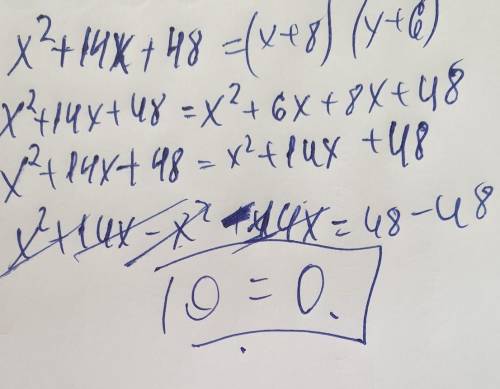 x²+14x+48=(x+8)(y+6)
x²+14x+48=x²+6x+8x+48
x²+14x+48=x²+14x+48
x²+14x-x²-14x=48-48
0=0.